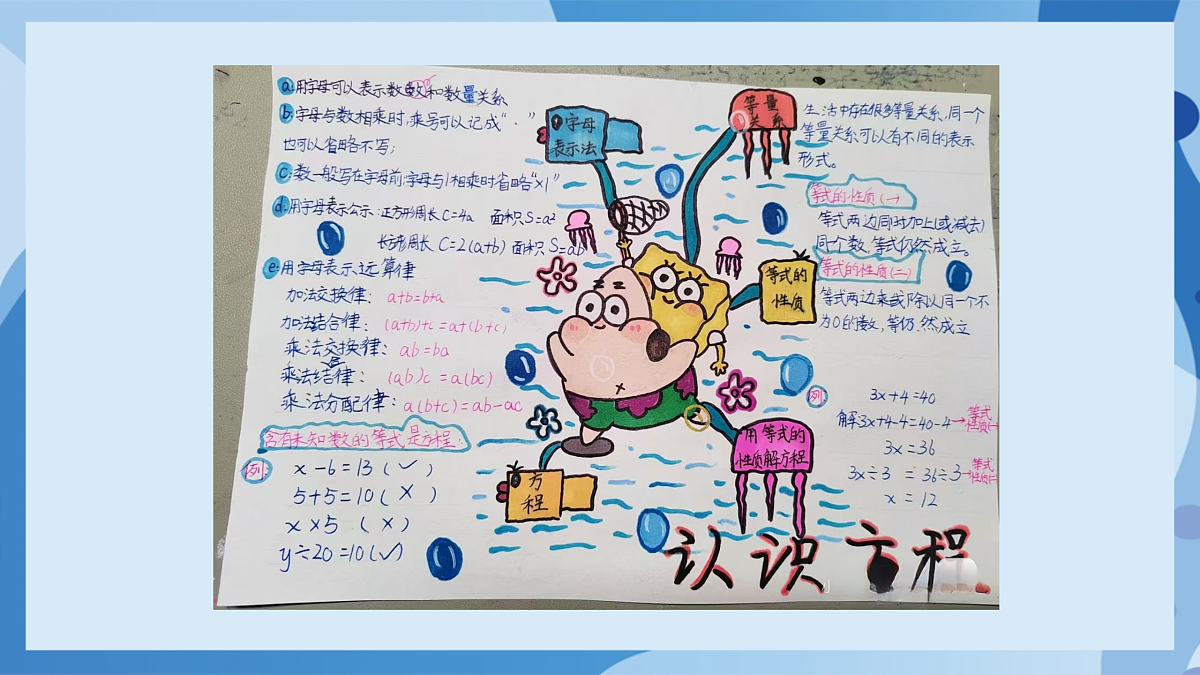 a 用字母可以表示数和数量关系
b 字母与数相乘时,乘号可以记成“·”
也可以省略不写;
c 数一般写在字母前,字母与1相乘时省略“×1”
d 用字母表示公示:正方形周长 C=4a 面积S=a²
长方形周长 C=2(a+b) 面积 S=ab
e 用字母表示运算律
加法交换律: a+b=b+a
加法结合律: (a+b)+c=a+(b+c)
乘法交换律: ab=ba
乘法结合律: (ab)c=a(bc)
乘法分配律: a(b+c)=ab-ac
含有未知数的等式是方程.
例:
x-6=13(✓)
5+5=10(×)
x×5 (×)
y÷20=10(✓)
字母
表示法
等量
关系
等式的
性质
用等式的
性质解方程
方
程
生活中存在很多等量关系,同一个
等量关系可以有不同的表示
形式。
等式的性质(一)
等式两边同时加上(或减去)
同个数,等式仍然成立。
等式的性质(二)
等式两边乘或除以同一个不
为0的数,等仍.然成立
例:
3x+4=40
解3x+4-4=40-4→等式
性质(一)
3x=36
3x÷3=36÷3→等式
性质(二)
x=12
认识方程